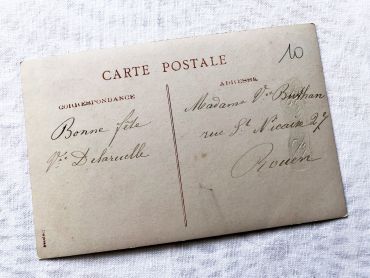 10
CARTE POSTALE
CORRESPONDANCE
ADRESSE
Bonne fête
Vve Delaruelle
Madame Vve
rue St Nicaise 27
Rouen